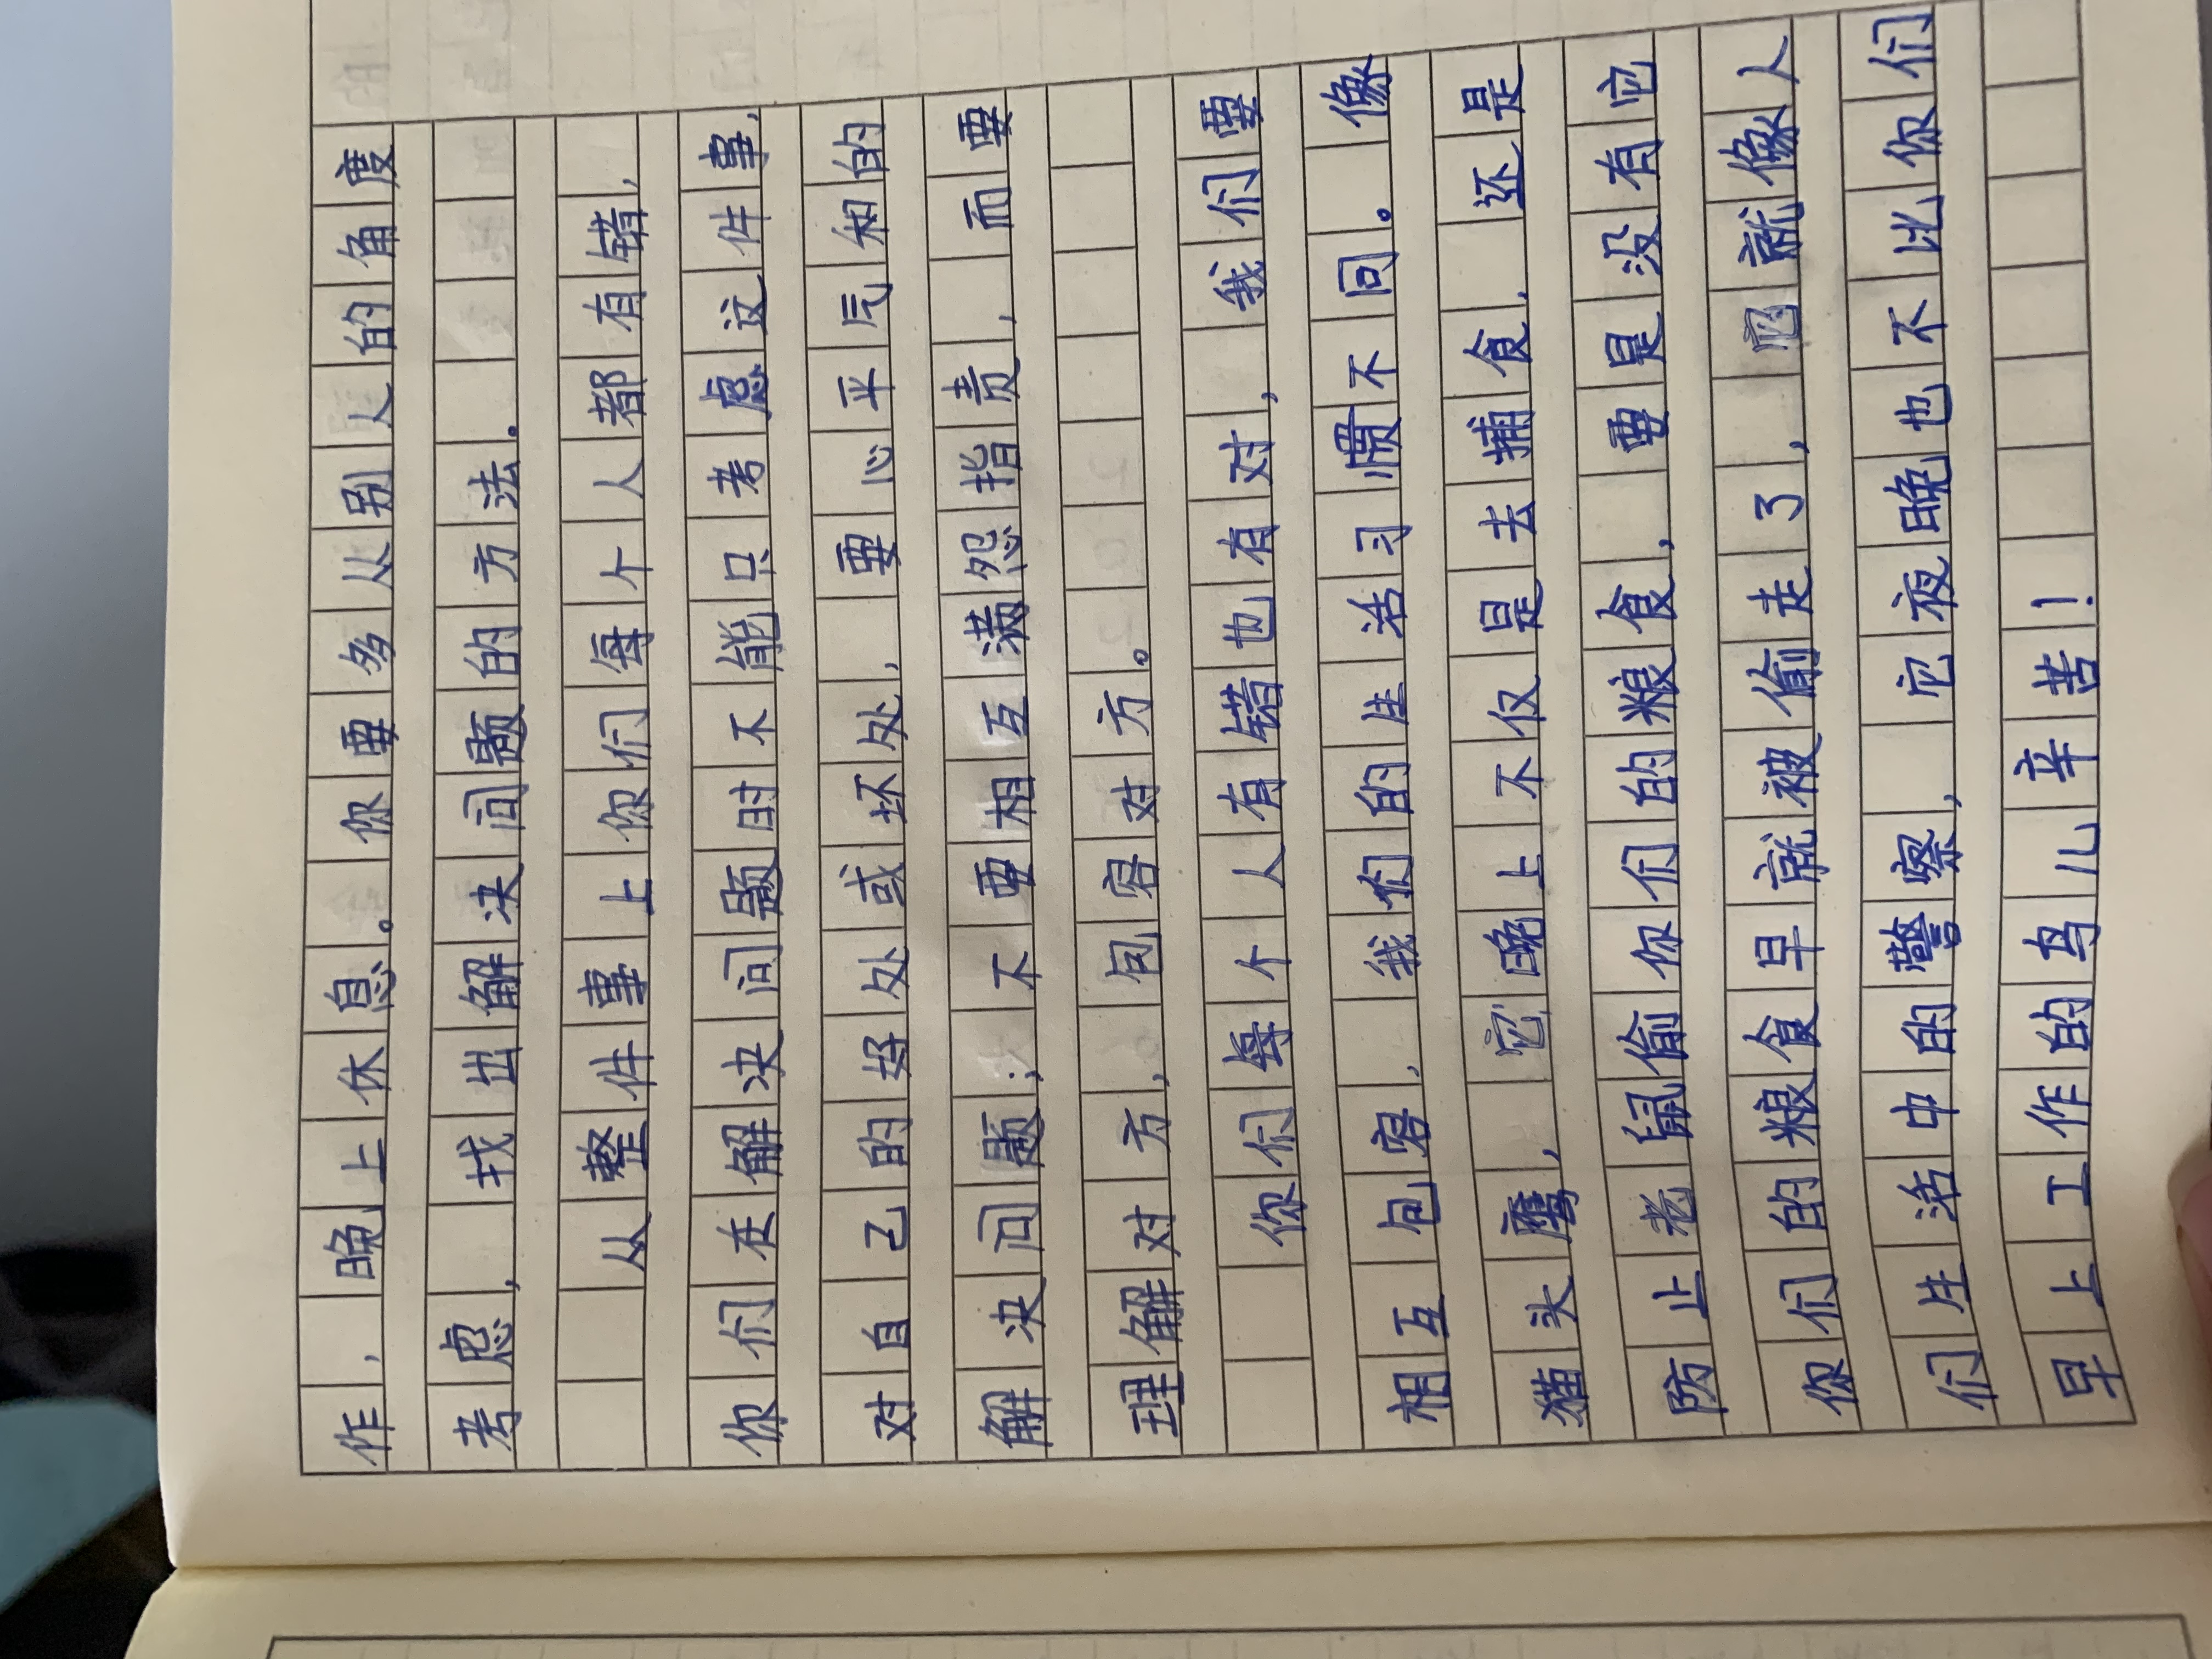 作，晚上休息。你要多从别人的角度
考虑，找出解决问题的方法。
从整件事上你们每个人都有错，
你们在解决问题时不能只考虑这件事，
对自己的好处或坏处，要心平气和的
解决问题；不要相互满怨指责，而要
理解对方，包容对方。
你们每个人有错也有对，我们要
相互包容，我们的生活习惯不同。像
猫头鹰，它晚上不仅是去捕食，还是
防止老鼠偷你们的粮食，要是没有它
你们的粮食早就被偷走了，它就像人
们生活中的警察，它夜晚也不比你们
早上工作的鸟儿辛苦！